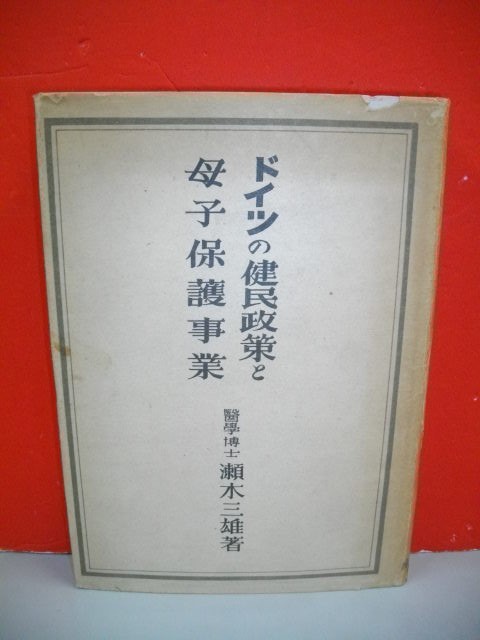 ドイツの健民政策と
母子保護事業
醫學博士 瀬木三雄著